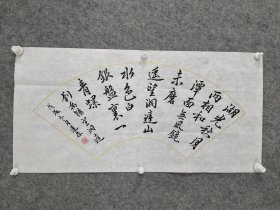 湖光秋月
两相和
潭面無風鏡
未磨
遥望洞庭山
水色白
銀盤裏一
青螺
劉禹錫望洞庭
戊戌冬月